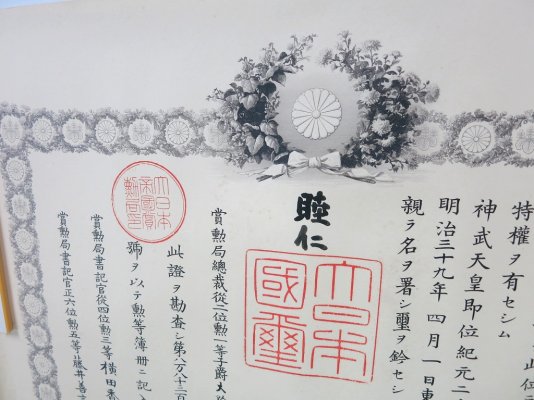 特權ヲ有セシム
神武天皇即位紀元二
明治三十九年四月一日東
親ラ名ヲ署シ璽ヲ鈐セシ
睦仁
大日本國璽
賞勲局總裁從二位勲一等子爵大
此證ヲ勘査シ第六八十三
號ヲ以テ勲等簿冊ニ記
賞勲局書記官從四位勲三等横田香
賞勲局書記官正六位勲五等藤井善